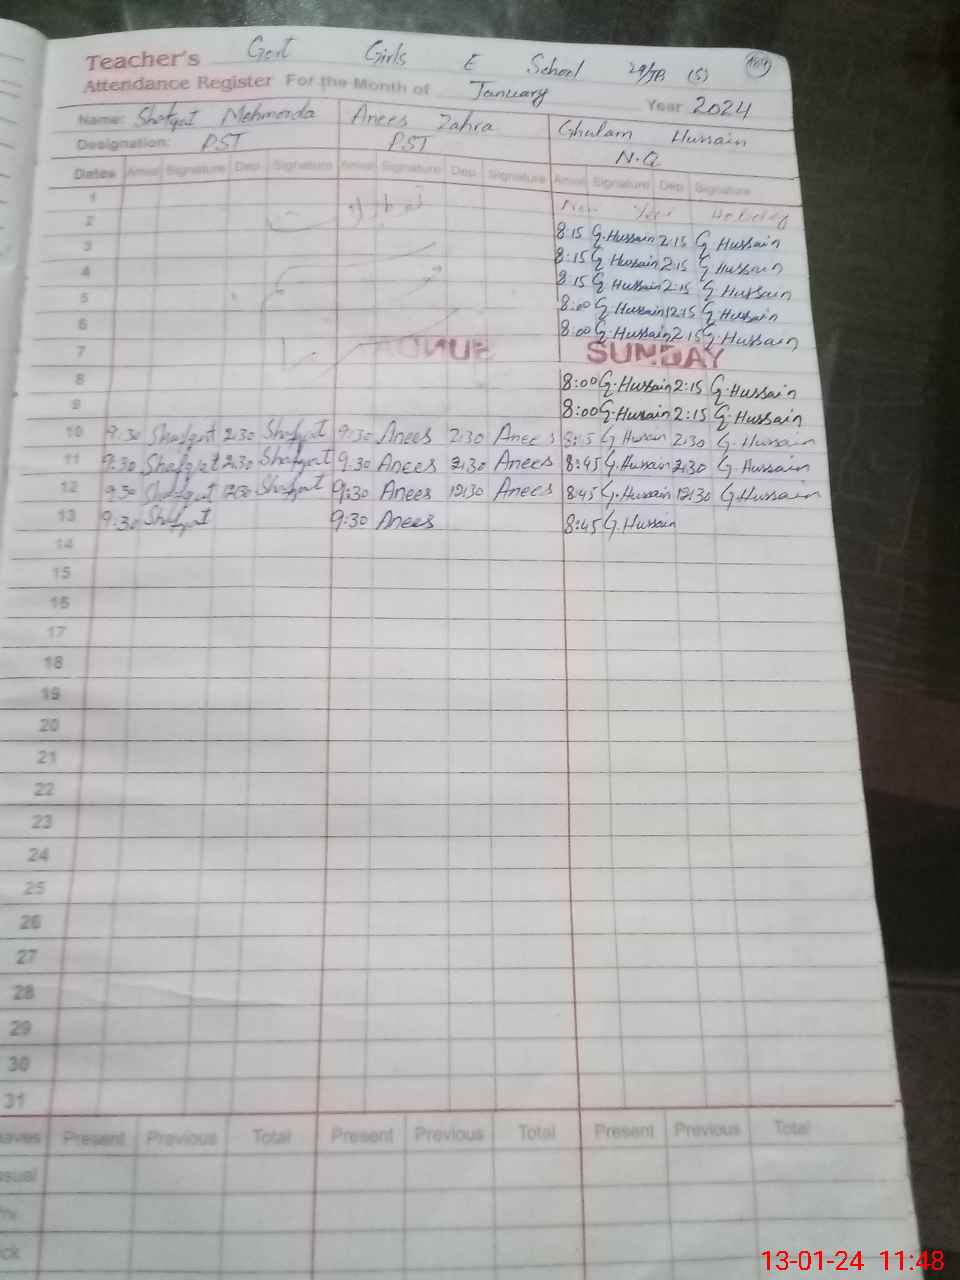 Teacher's Govt Girls E School 29/TB (S) 169
Attendance Register For the Month of January Year 2024
Name: Shafqat Mehmooda Anees Zahra Ghulam Hussain
Designation: PST PST N.Q
Dates Arrival Signature Dep Signature Arrival Signature Dep Signature Arrival Signature Dep Signature
1 New Year Holiday
2 8:15 G.Hussain 2:15 G Hussain
3 8:15 G Hussain 2:15 G Hussain
4 8:15 G Hussain 2:15 G Hussain
5 8:00 G Hussain 12:15 G Hussain
6 8:00 G.Hussain 2:15 G.Hussain
7 SUNDAY
8 8:00 G.Hussain 2:15 G.Hussain
9 8:00 G.Hussain 2:15 G.Hussain
10 9:30 Shafqat 2:30 Shafqat 9:30 Anees 2:30 Anees G Hussain 2:30 G.Hussain
11 9:30 Shafqat 2:30 Shafqat 9:30 Anees 2:30 Anees 8:45 G.Hussain 2:30 G.Hussain
12 9:30 Shafqat 12:30 Shafqat 9:30 Anees 12:30 Anees 8:45 G.Hussain 12:30 G.Hussain
13 9:30 Shafqat 9:30 Anees 8:45 G.Hussain
14
15
16
17
18
19
20
21
22
23
24
25
26
27
28
29
30
31
Present Previous Total Present Previous Total Present Previous Total
13-01-24 11:48